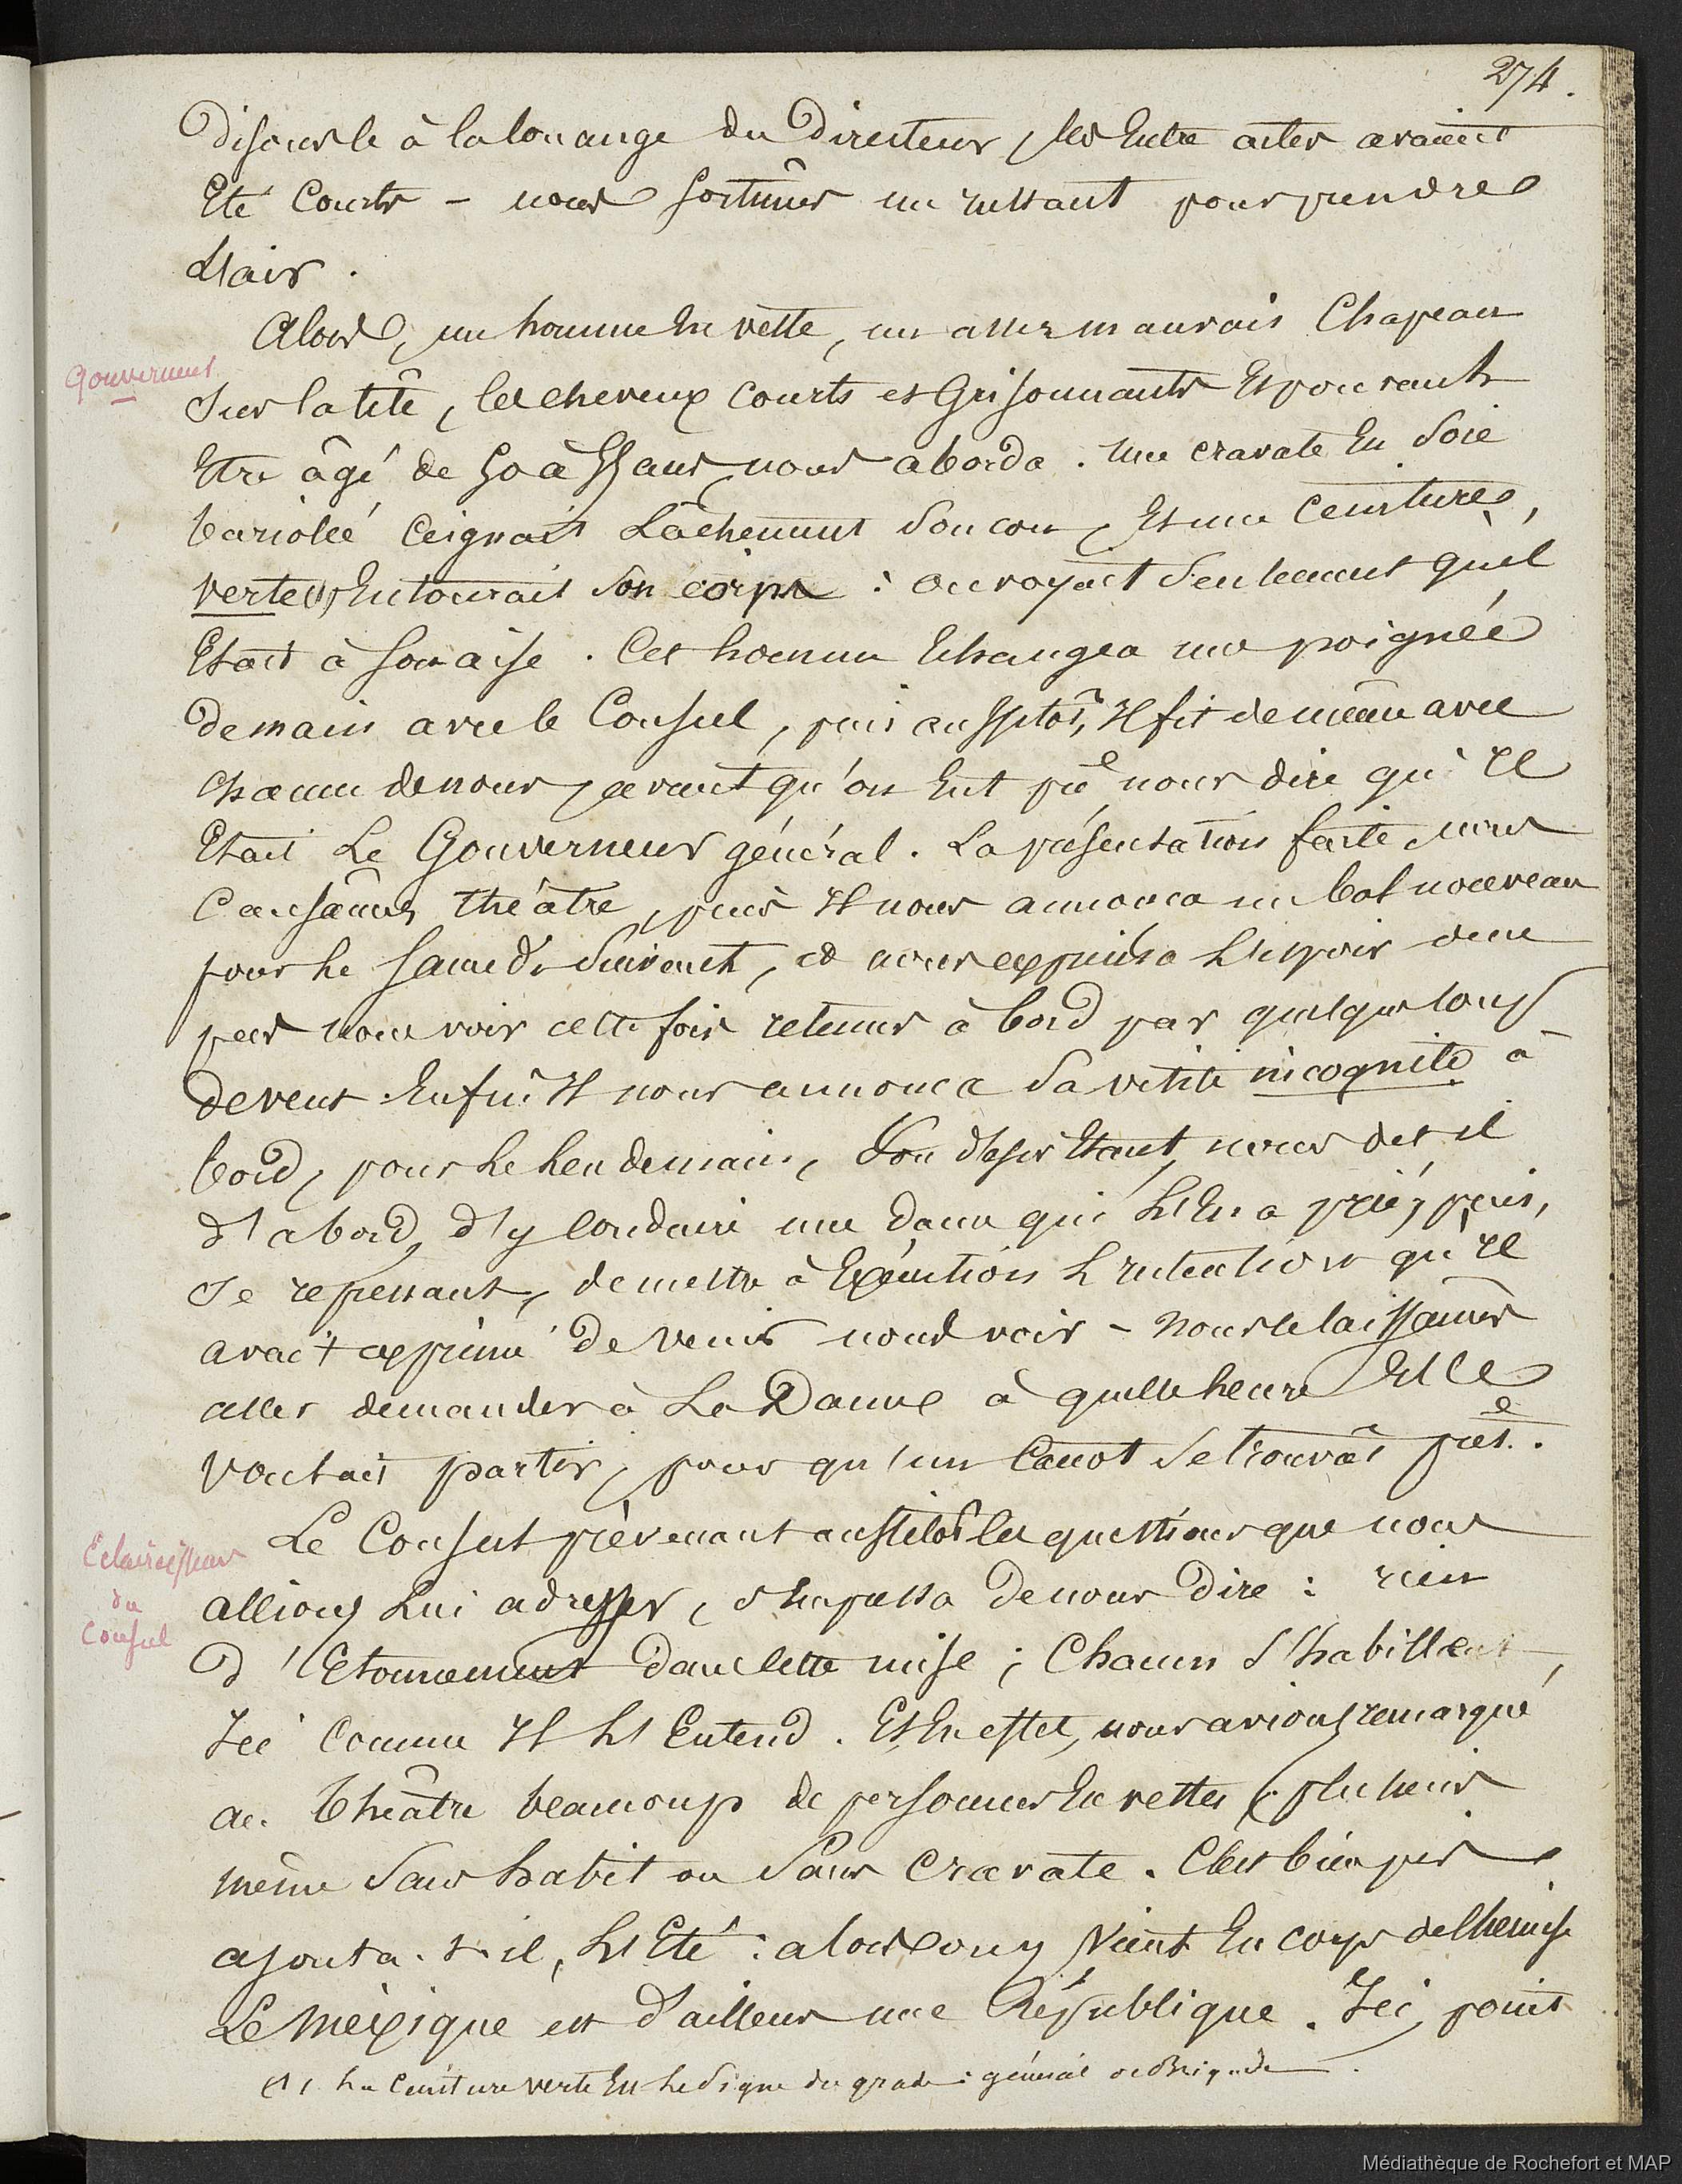 274.
Disons le à la louange du Directeur, les Entre actes avaient
Eté Courts - nous sortimes un instant pour prendre
L'air.
Alors, un homme En veste, un assez mauvais Chapeau
Gouverneur
Sur la tête, les cheveux Courts et Grisonnants Et pouvant
Etre âgé de 50 à 55 ans, nous aborda. Une cravate En Soie
bariolée Ceignait Lâchement Son cou, Et une Ceinture,
verte (1) Entourait Son corps : on voyait Seulement qu'il
Etait à Son aise. Cet homme Echangea une poignée
De main avec le Consul, puis aussitôt, Il fit de même avec
chacun de nous, avant qu'on Eut pu nous dire qu'Il
Etait Le Gouverneur général. La présentation faite, nous
Causâmes théâtre, puis Il nous annonca un bal nouveau
pour le Samedi Suivant, et nous exprima L'Espoir de ne
pas nous voir cette fois retenus à bord par quelque coup
de vent. Enfin Il nous annonca Sa visite incognito à
bord, pour le Lendemain, Son désir Etant, nous dit il
d'abord, d'y conduire une dame qui L'En a prié, puis,
Se reprenant, de mettre à Exécution L'intention qu'Il
avait exprimé De venir nous voir - nous le laissâmes
aller demander à La Dame à quelle heure Elle
voulait partir, pour qu'un Canot Se trouvât prêt.
Le Consul prévenant aussitôt les questions que nous
Eclaircissemens
du
Consul
allions Lui adresser, s'Empressa De nous Dire : rien
D'Etonnement dans cette mise ; Chacun S'habillant,
Ici Comme Il L'Entend. Et En effet, nous avions remarqué
au théâtre beaucoup de personnes En vestes, plusieurs
même Sans habit ou Sans Cravate. C'est bien pis
ajouta-t-il, L'Eté : alors on y Vient En corps de Chemise
Le Méxique est D'ailleurs une République. Ici, point
(1) La Ceinture verte Est Le Signe du grade : général de Brigade.
Médiathèque de Rochefort et MAP